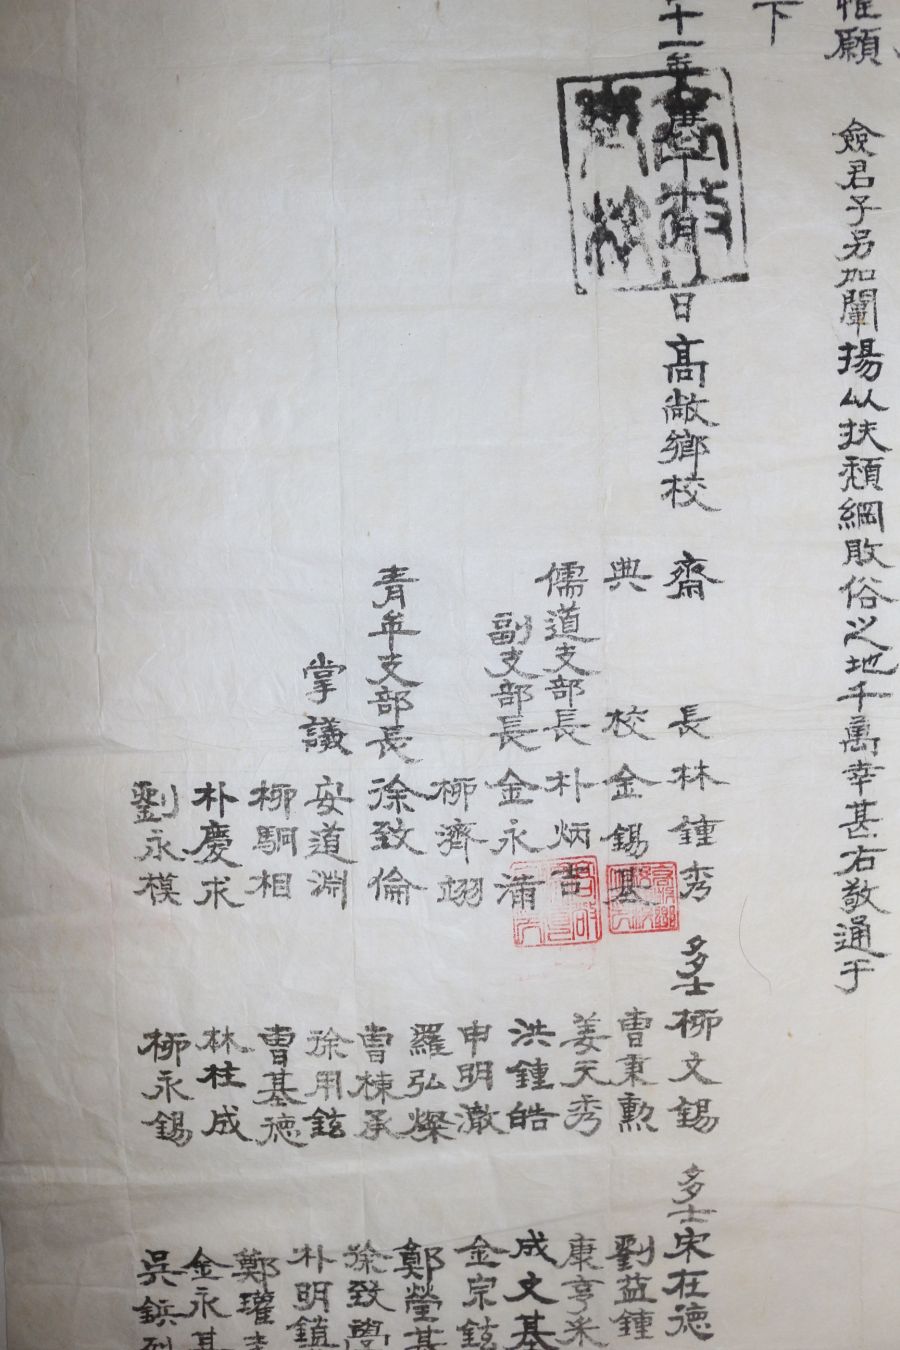 惟願 僉君子另加闡揚以扶頹綱敗俗之地千萬幸甚右敬通于
下
十一年 日高敞鄉校 齋長林鍾秀 多士柳文錫 多士宋在德
典校金錫基 曹秉勲 劉益鍾
儒道支部長朴炳 姜天秀 康亨釆
副支部長金永蒲 洪鍾皓 成文基
柳濟翊 申明澈 金宗鉉
青年支部長徐致倫 羅弘燦 鄭瑩基
掌議安道淵 曹棟承 徐致學
柳駉相 徐用鉉 朴明鎮
朴慶求 曹基德 鄭瓘
劉永模 林柱成 金永基
柳永錫 吳鋲烈